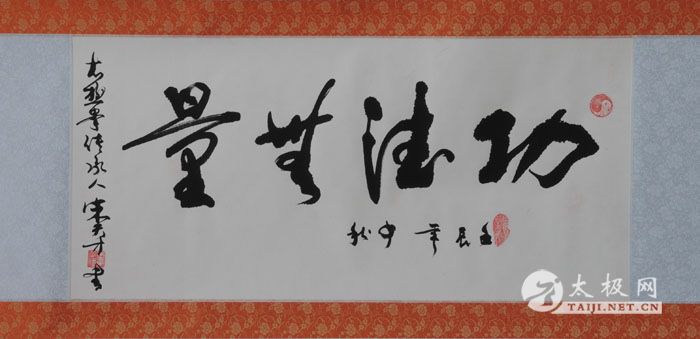 功德無量
壬辰年中秋
太极拳传承人朱天才书
太极网
TAIJI.NET.CN